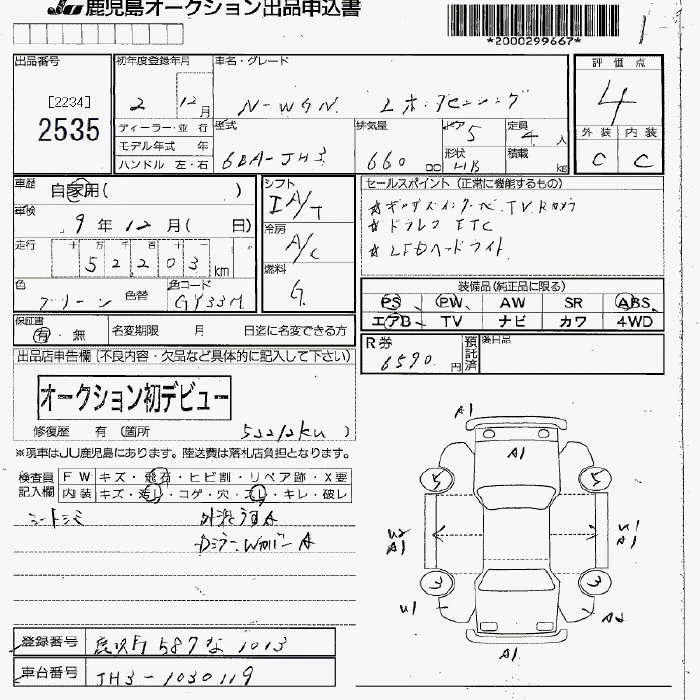 JU 鹿児島オークション出品申込書
*2000299667*
出品番号
[2234]
2535
初年度登録年月
2 12月
車名・グレード
N-WGN Lホンダセンシング
評価点
4
外装 内装
C C
ディーラー・並 行
モデル年式 年
ハンドル 左・右
型式
6BA-JH3
排気量
660 cc
ドア 5
形状 HB
定員 4 人
積載 kg
車歴 自家用( )
車検 9年12月( 日)
走行 52203 km
色 グリーン 色替
色コード GY33M
シフト
IA/T
冷房
A/C
燃料
G
セールスポイント (正常に機能するもの)
☆ギャザズインターナビ TV Rカメラ
☆ドラレコ ETC
☆LEDヘッドライト
装備品(純正品に限る)
PS PW AW SR ABS
エアB TV ナビ カワ 4WD
保証書
有・無
名変期限 月 日迄に名変できる方
R券
6590 円
預託済
後日品
出品店申告欄(不良内容・欠品など具体的に記入して下さい)
オークション初デビュー
修復歴 有 (箇所 )
※現車はJU鹿児島にあります。陸送費は落札店負担となります。
検査員記入欄
FW キズ・飛石・ヒビ割・リペア跡・X要
内装 キズ・汚レ・コゲ・穴・スレ・キレ・破レ
シートシミ
外装うすA
DミラーWカバーA
A1
A1
5 5
U2 A1
U1 A1
3 3
U1
A2
A1
登録番号 鹿児島 587 な 1013
車台番号 JH3-1030119